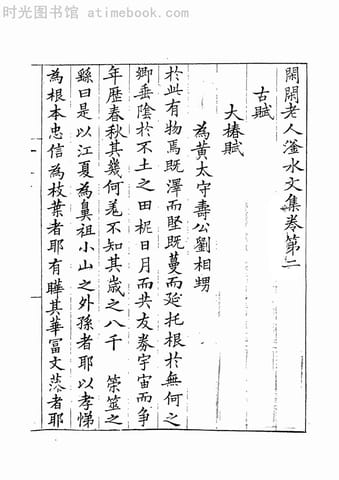 时光图书馆 atimebook.com
閑閑老人滏水文集卷第二
古賦
大椿賦
為黃太守壽公劉相甥
於此有物焉既澤而堅既蔓而延托根於無何之
鄉垂陰於不土之田柅日月而共友劵宇宙而爭
年歷春秋其幾何羌不知其歲之八千 筞筮之
繇曰是以江夏為鼻祖小山之外孫者耶以孝悌
為根本忠信為枝葉者耶有曄其華冨文藻者耶